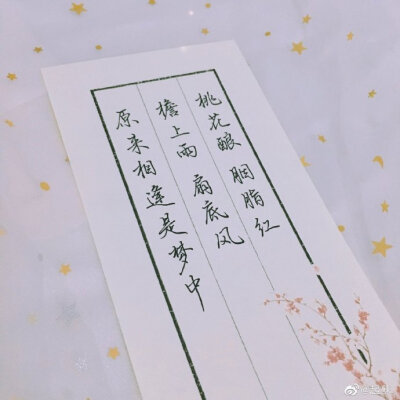 桃花酿 胭脂红
檐上雨 扇底风
原来相逢是梦中